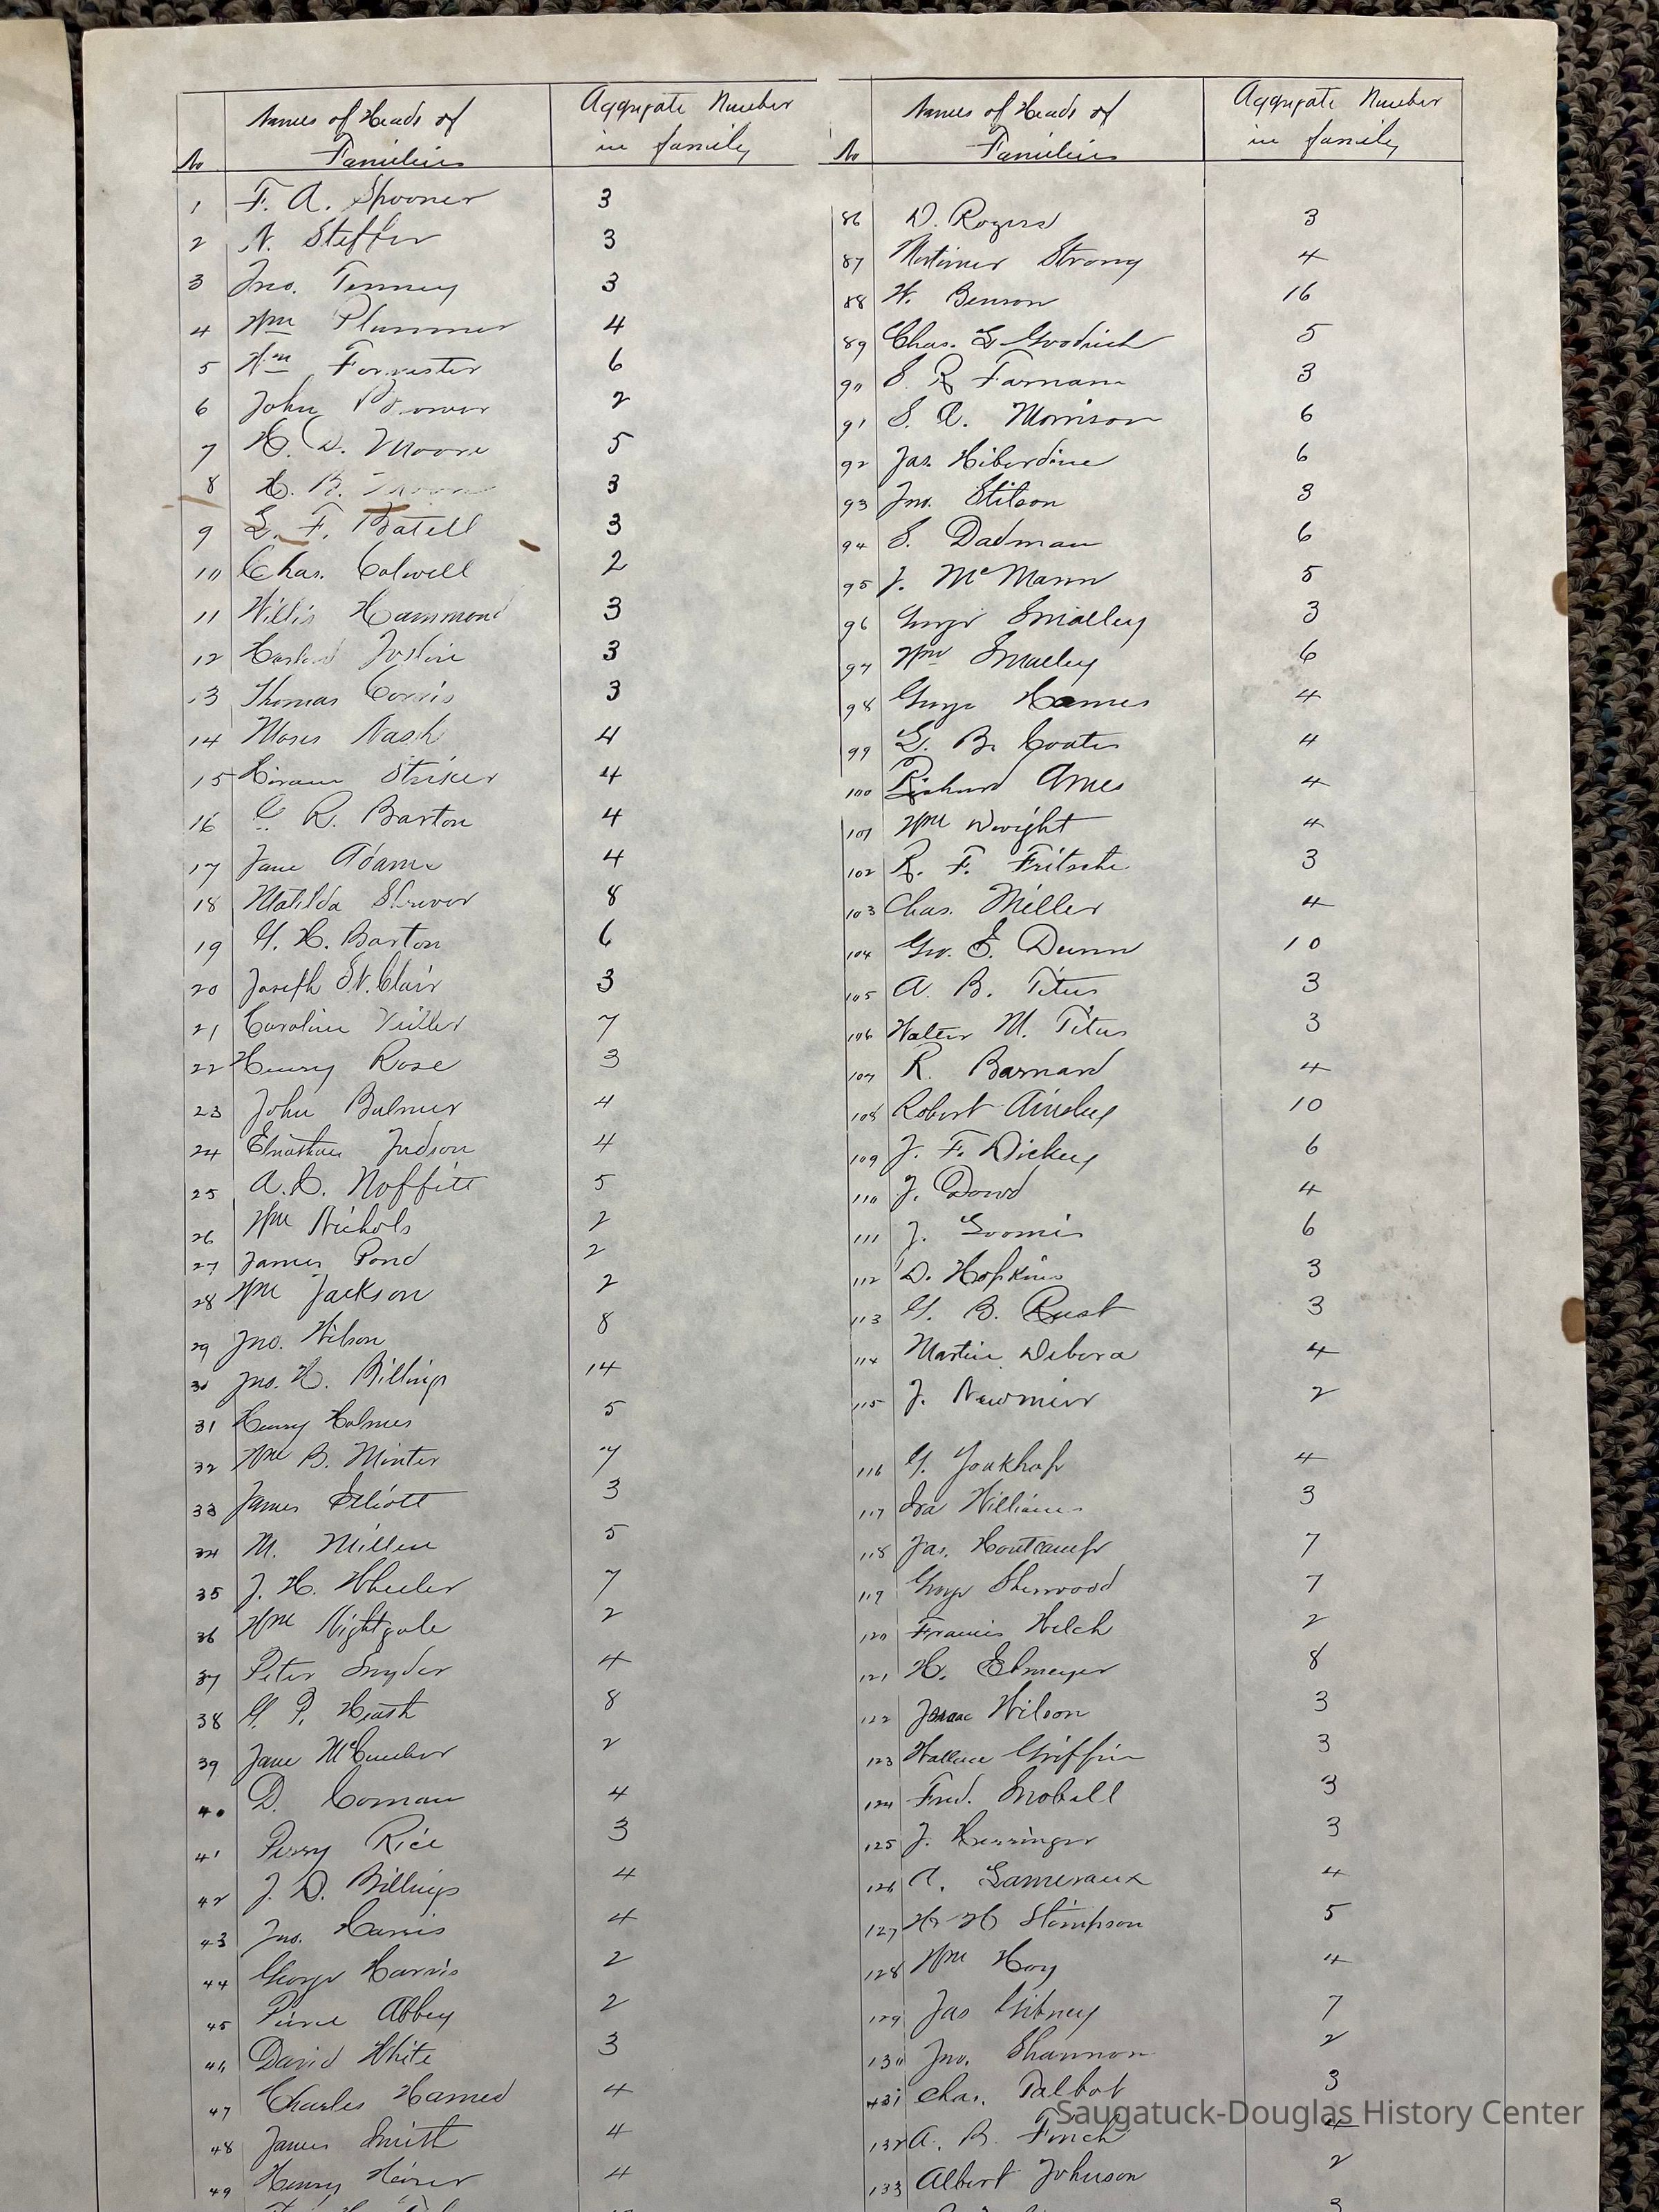 No
Names of Heads of
Families
Aggregate Number
in family
1 F. A. Spooner 3
2 N. Steffer 3
3 Jno. Tenney 3
4 Wm Plummer 4
5 Wm Forrester 6
6 John 2
7 H. D. Moore 5
8 H. B. Moore 3
9 L. F. Batell 3
10 Chas. Colwell 2
11 Willis Hammond 3
12 Justin 3
13 Thomas Corris 3
14 Moses Nash 4
15 Hiram Striker 4
16 C. R. Barton 4
17 Jane Adams 4
18 Matilda Shriver 8
19 G. H. Barton 6
20 Joseph St. Clair 3
21 Caroline 7
22 Henry Rose 3
23 John Bulmer 4
24 Elnathan Judson 4
25 A. H. Moffitt 5
26 Wm Nichols 2
27 James Pond 2
28 Wm Jackson 2
29 Jno. Wilson 8
30 Jno. H. Billings 14
31 Henry Holmes 5
32 Wm B. Minter 7
33 James Elliott 3
34 M. Miller 5
35 J. H. Wheeler 7
36 Wm Nightgale 2
37 Peter Snyder 4
38 G. P. Heath 8
39 Jane McCumber 2
40 D. Coman 4
41 Perry Rice 3
42 J. D. Billings 4
43 Jno. Harris 4
44 George Harris 2
45 Abbey 2
46 David White 3
47 Charles Harned 4
48 James Smith 4
49 Henry 4
No
Names of Heads of
Families
Aggregate Number
in family
86 D. Rogers 3
87 Mortimer Strong 4
88 W. Benson 16
89 Chas. L Goodrich 5
90 S. R Farnam 3
91 S. A. Morrison 6
92 Jas. Hiberdine 6
93 Jno. Stilson 3
94 S. Dadman 6
95 J. McMann 5
96 George Smalley 3
97 Wm Smalley 6
98 George Hames 4
99 L. B. Coates 4
100 Richard Ames 4
101 Wm Dwight 4
102 R. F. Fritsche 3
103 Chas. Miller 4
104 Geo. E. Dunn 10
105 A. B. Titus 3
106 Walter M. Titus 3
107 R. Barnard 4
108 Robert Ainsley 10
109 J. F. Dickey 6
110 J. Dowd 4
111 J. Loomis 6
112 D. Hopkins 3
113 G. B. Rust 3
114 Martin Debora 4
115 J. Newmier 2
116 G. Yonkhof 4
117 Ira Williams 3
118 Jas. Houtcamp 7
119 George Sherwood 7
120 Francis Welch 2
121 H. Ebmeyer 8
122 Isaac Wilson 3
123 Wallace Griffin 3
124 Fred. Snobell 3
125 J. Herringer 3
126 A. Lameraux 4
127 H. H. Stimpson 5
128 Wm Hoy 4
129 Jas Gibney 7
130 Jno. Shannon 2
131 Chas. Talbot 3
132 A. B. Finch 4
133 Albert Johnson 2
3
Saugatuck-Douglas History Center